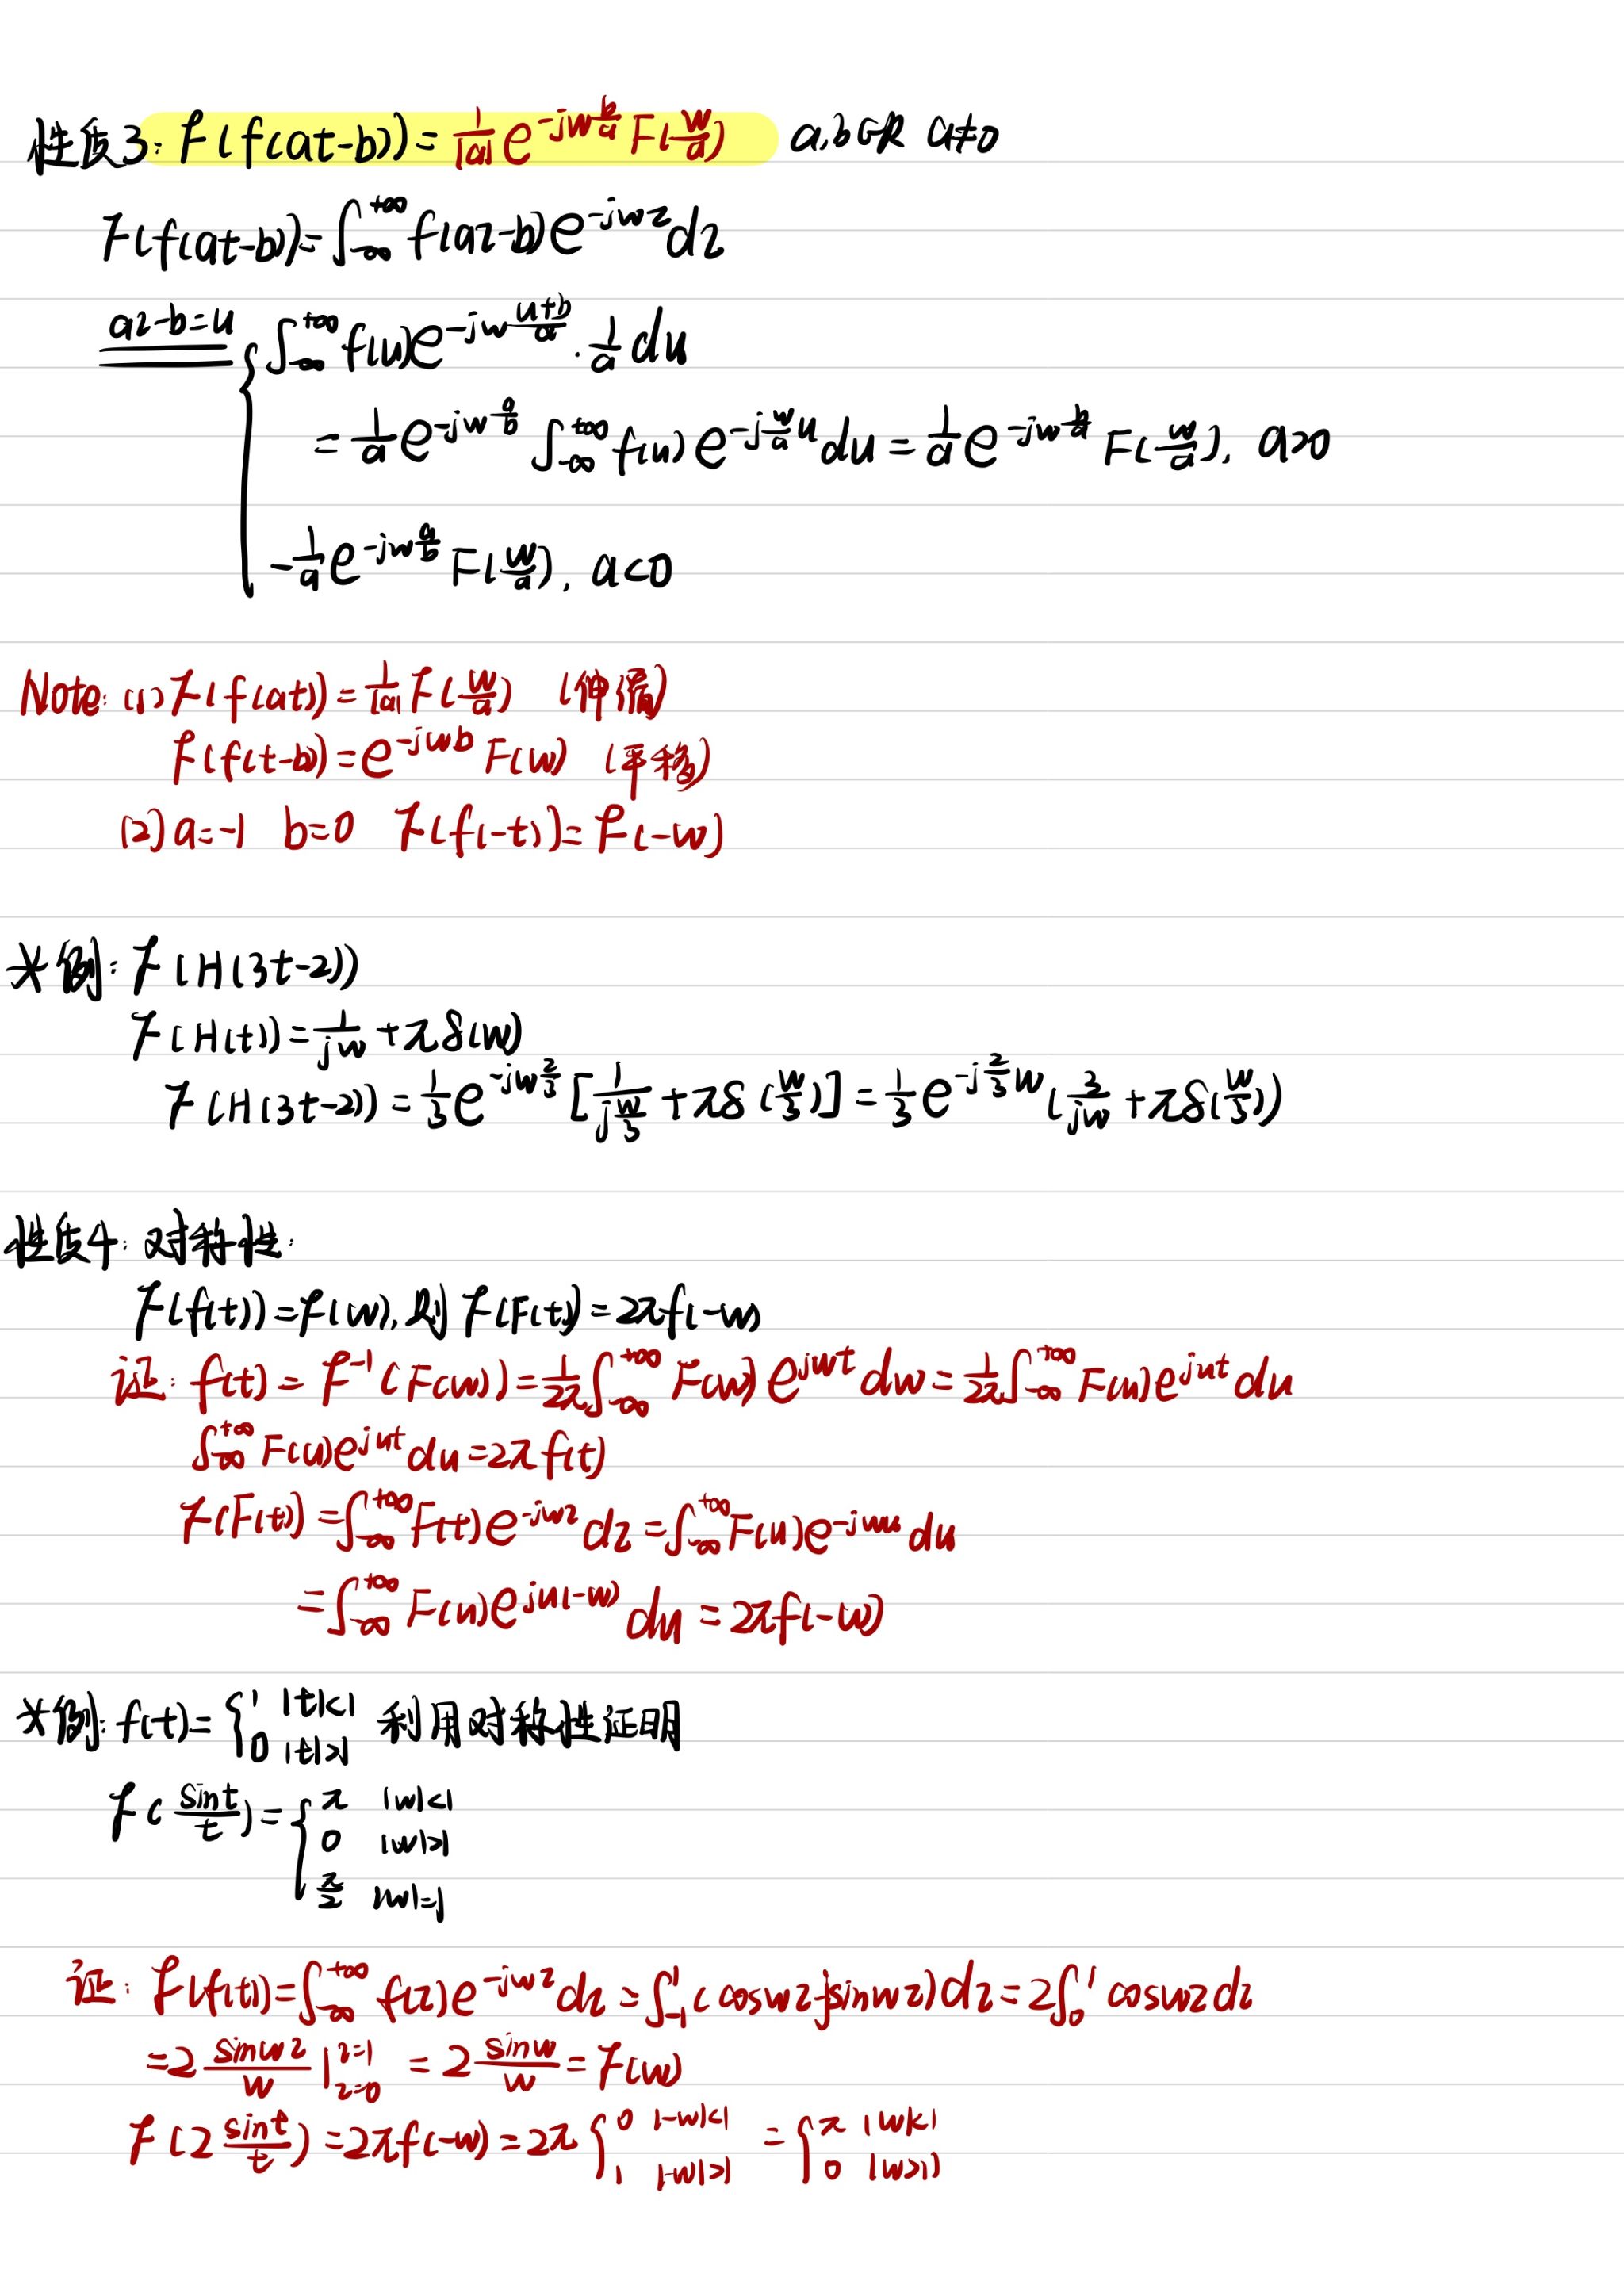 性质3: F(f(at-b)) = 1/|a| e^{-jw b/a} F(w/a) a,b∈R a≠0
F(f(at-b)) = ∫_{-∞}^{+∞} f(az-b) e^{-jwz} dz
az-b=u { ∫_{-∞}^{+∞} f(u) e^{-jw (u+b)/a} · 1/a du
= 1/a e^{-jw a/b} ∫_{-∞}^{+∞} f(u) e^{-j w/a u} du = 1/a e^{-jw b/a} F(w/a), a>0
-1/a e^{-jw a/b} F(w/a), a<0
Note: (1) F(f(at)) = 1/|a| F(w/a) (伸缩)
F(f(t-b)) = e^{-jwb} F(w) (平移)
(2) a=-1 b=0 F(f(-t)) = F(-w)
*例: F(H(3t-2))
F(H(t)) = 1/jw + πδ(w)
F(H(3t-2)) = 1/3 e^{-jw 2/3} [1/(j w/3) + πδ(w/3)] = 1/3 e^{-j 2/3 w} (3/jw + πδ(w/3))
性质4: 对称性:
F(f(t)) = F(w), 则 F(F(t)) = 2πf(-w)
证: f(t) = F^{-1}(F(w)) = 1/2π ∫_{-∞}^{+∞} F(w) e^{jwt} dw = 1/2π ∫_{-∞}^{+∞} F(u) e^{jut} du
∫_{-∞}^{+∞} F(u) e^{jut} du = 2πf(t)
F(F(t)) = ∫_{-∞}^{+∞} F(t) e^{-jwz} dz = ∫_{-∞}^{+∞} F(u) e^{-jwu} du
= ∫_{-∞}^{+∞} F(u) e^{ju(-w)} du = 2πf(-w)
*例: f(t) = { 1 |t|<1 利用对称性证明
0 |t|>1
F(sint/t) = { π |w|<1
0 |w|>1
π/2 |w|=1
证: F(f(t)) = ∫_{-∞}^{+∞} f(z) e^{-jwz} dz = ∫_{-1}^{1} (coswz-jsinwz) dz = 2∫_0^1 coswz dz
= 2 sinwz/w |_{z=0}^{z=1} = 2 sinw/w = F(w)
F(2 sint/t) = 2πf(-w) = 2π { 0 |-w|<1 = { π |w|<1
1 |-w|>1 0 |w|>1